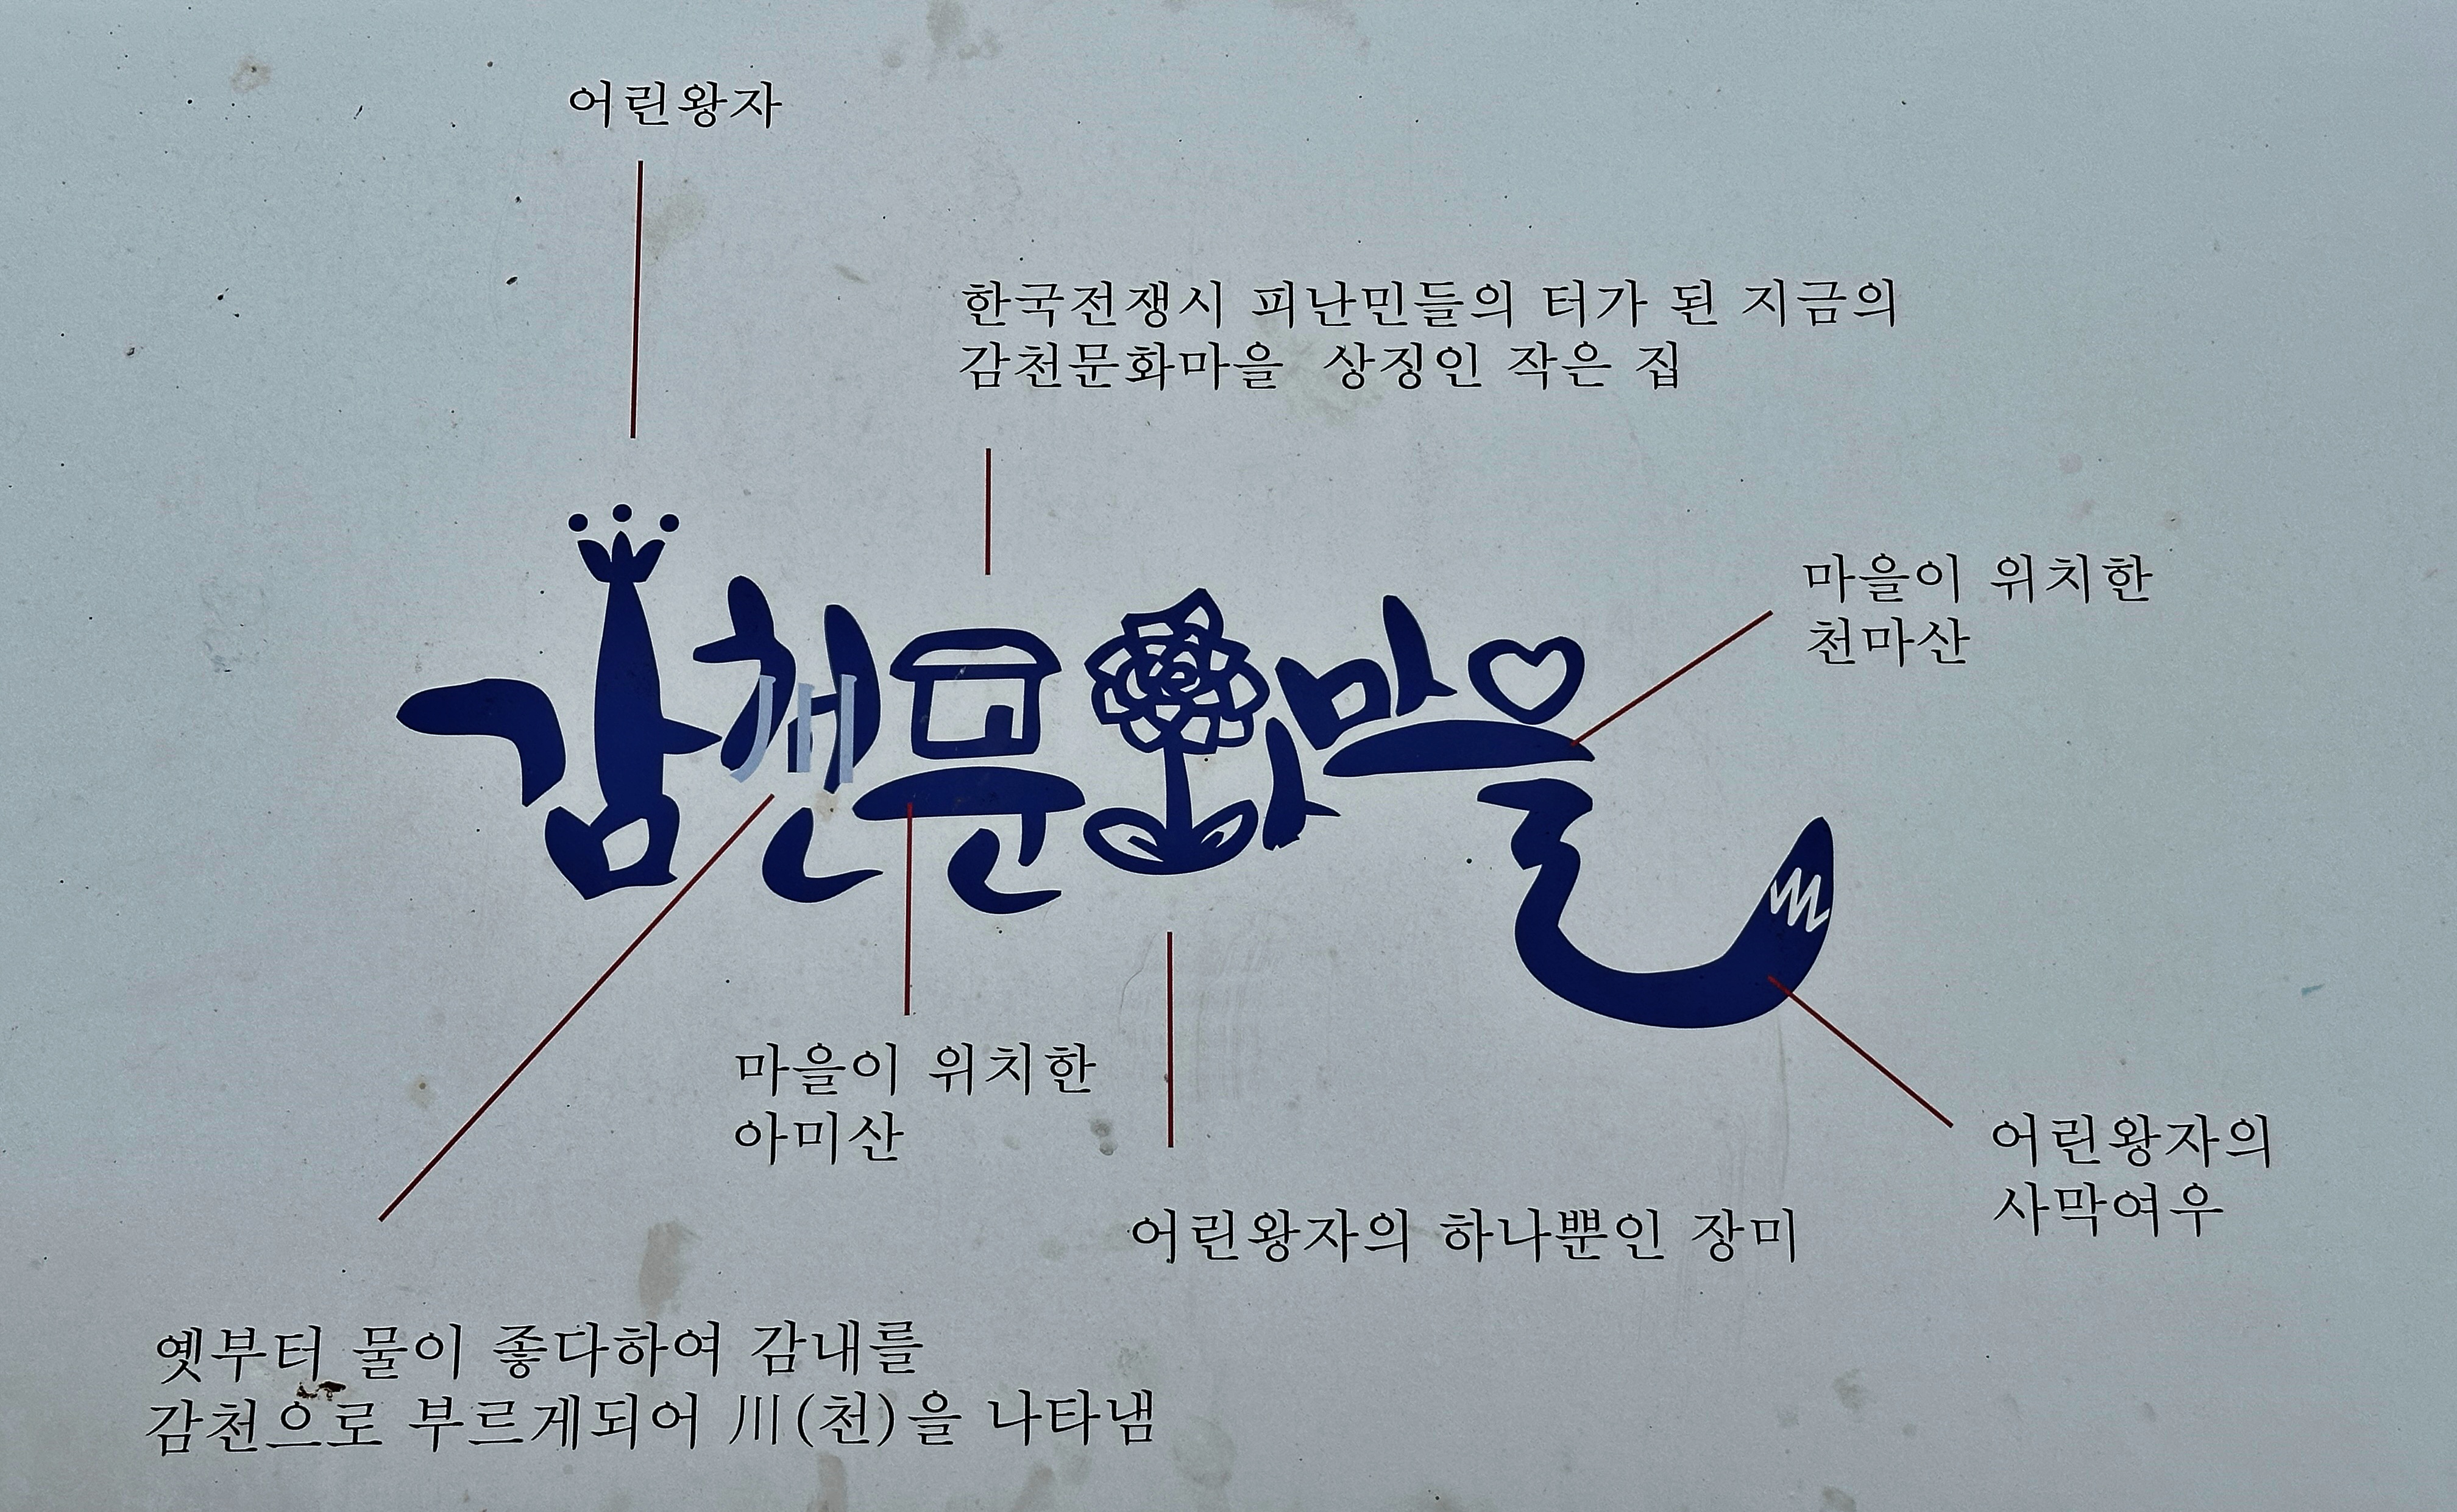 어린왕자
한국전쟁시 피난민들의 터가 된 지금의
감천문화마을 상징인 작은 집
마을이 위치한
천마산
감천문화마을
마을이 위치한
아미산
어린왕자의
사막여우
어린왕자의 하나뿐인 장미
옛부터 물이 좋다하여 감내를
감천으로 부르게되어 川(천)을 나타냄